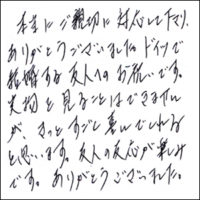 本当にご親切に対応して下さり、
ありがとうございました。ドイツで
結婚する友人へのお祝いです。
実物を見ることはできません
が、きっとすごく喜んでくれる
と思います。友人の反応が楽しみ
です。ありがとうございました。